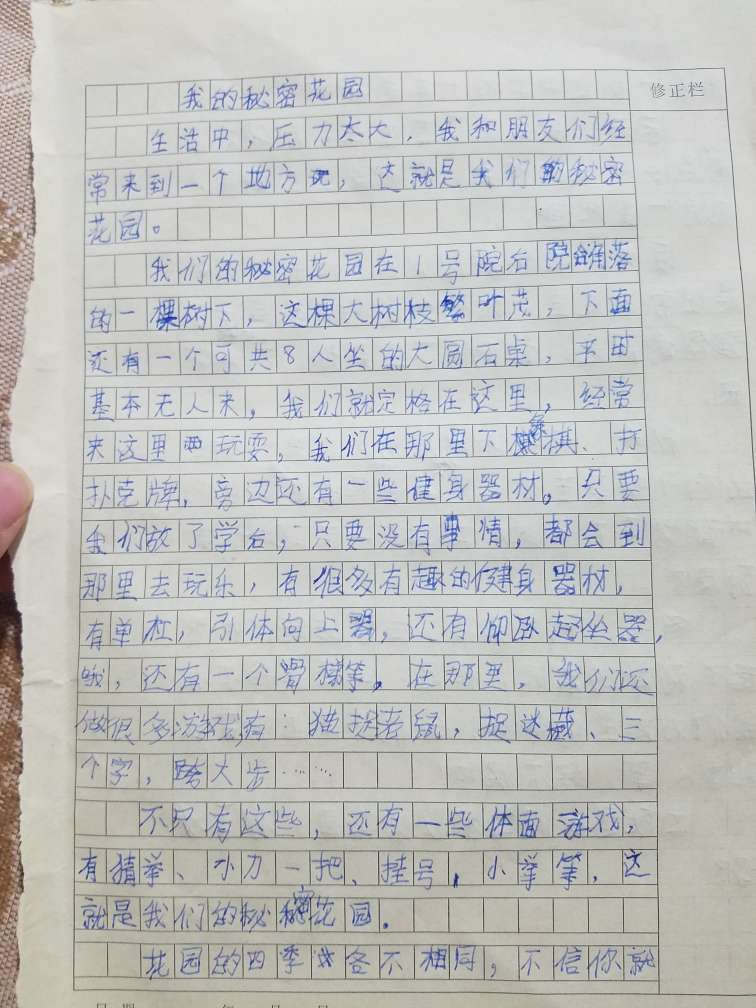 我的秘密花园
修正栏
生活中，压力太大，我和朋友们经
常来到一个地方玩，这就是我们的秘密
花园。
我们的秘密花园在1号院右院角落
的一棵树下，这棵大树枝繁叶茂，下面
还有一个可共8人坐的大圆石桌，平时
基本无人来，我们就定格在这里，经常
来这里玩耍，我们在那里下象棋、打
扑克牌，旁边还有一些健身器材。只要
我们放了学后，只要没有事情，都会到
那里去玩乐，有很多有趣的健身器材，
有单杠，引体向上器，还有仰卧起坐器，
哦，还有一个滑梯等，在那里，我们还
做很多游戏，有：猫捉老鼠，捉迷藏、三
个字，跨大步……
不只有这些，还有一些体面游戏，
有猜拳、小刀一把、挂号，小拳等，这
就是我们的秘密花园.
花园的四季各不相同，不信你就